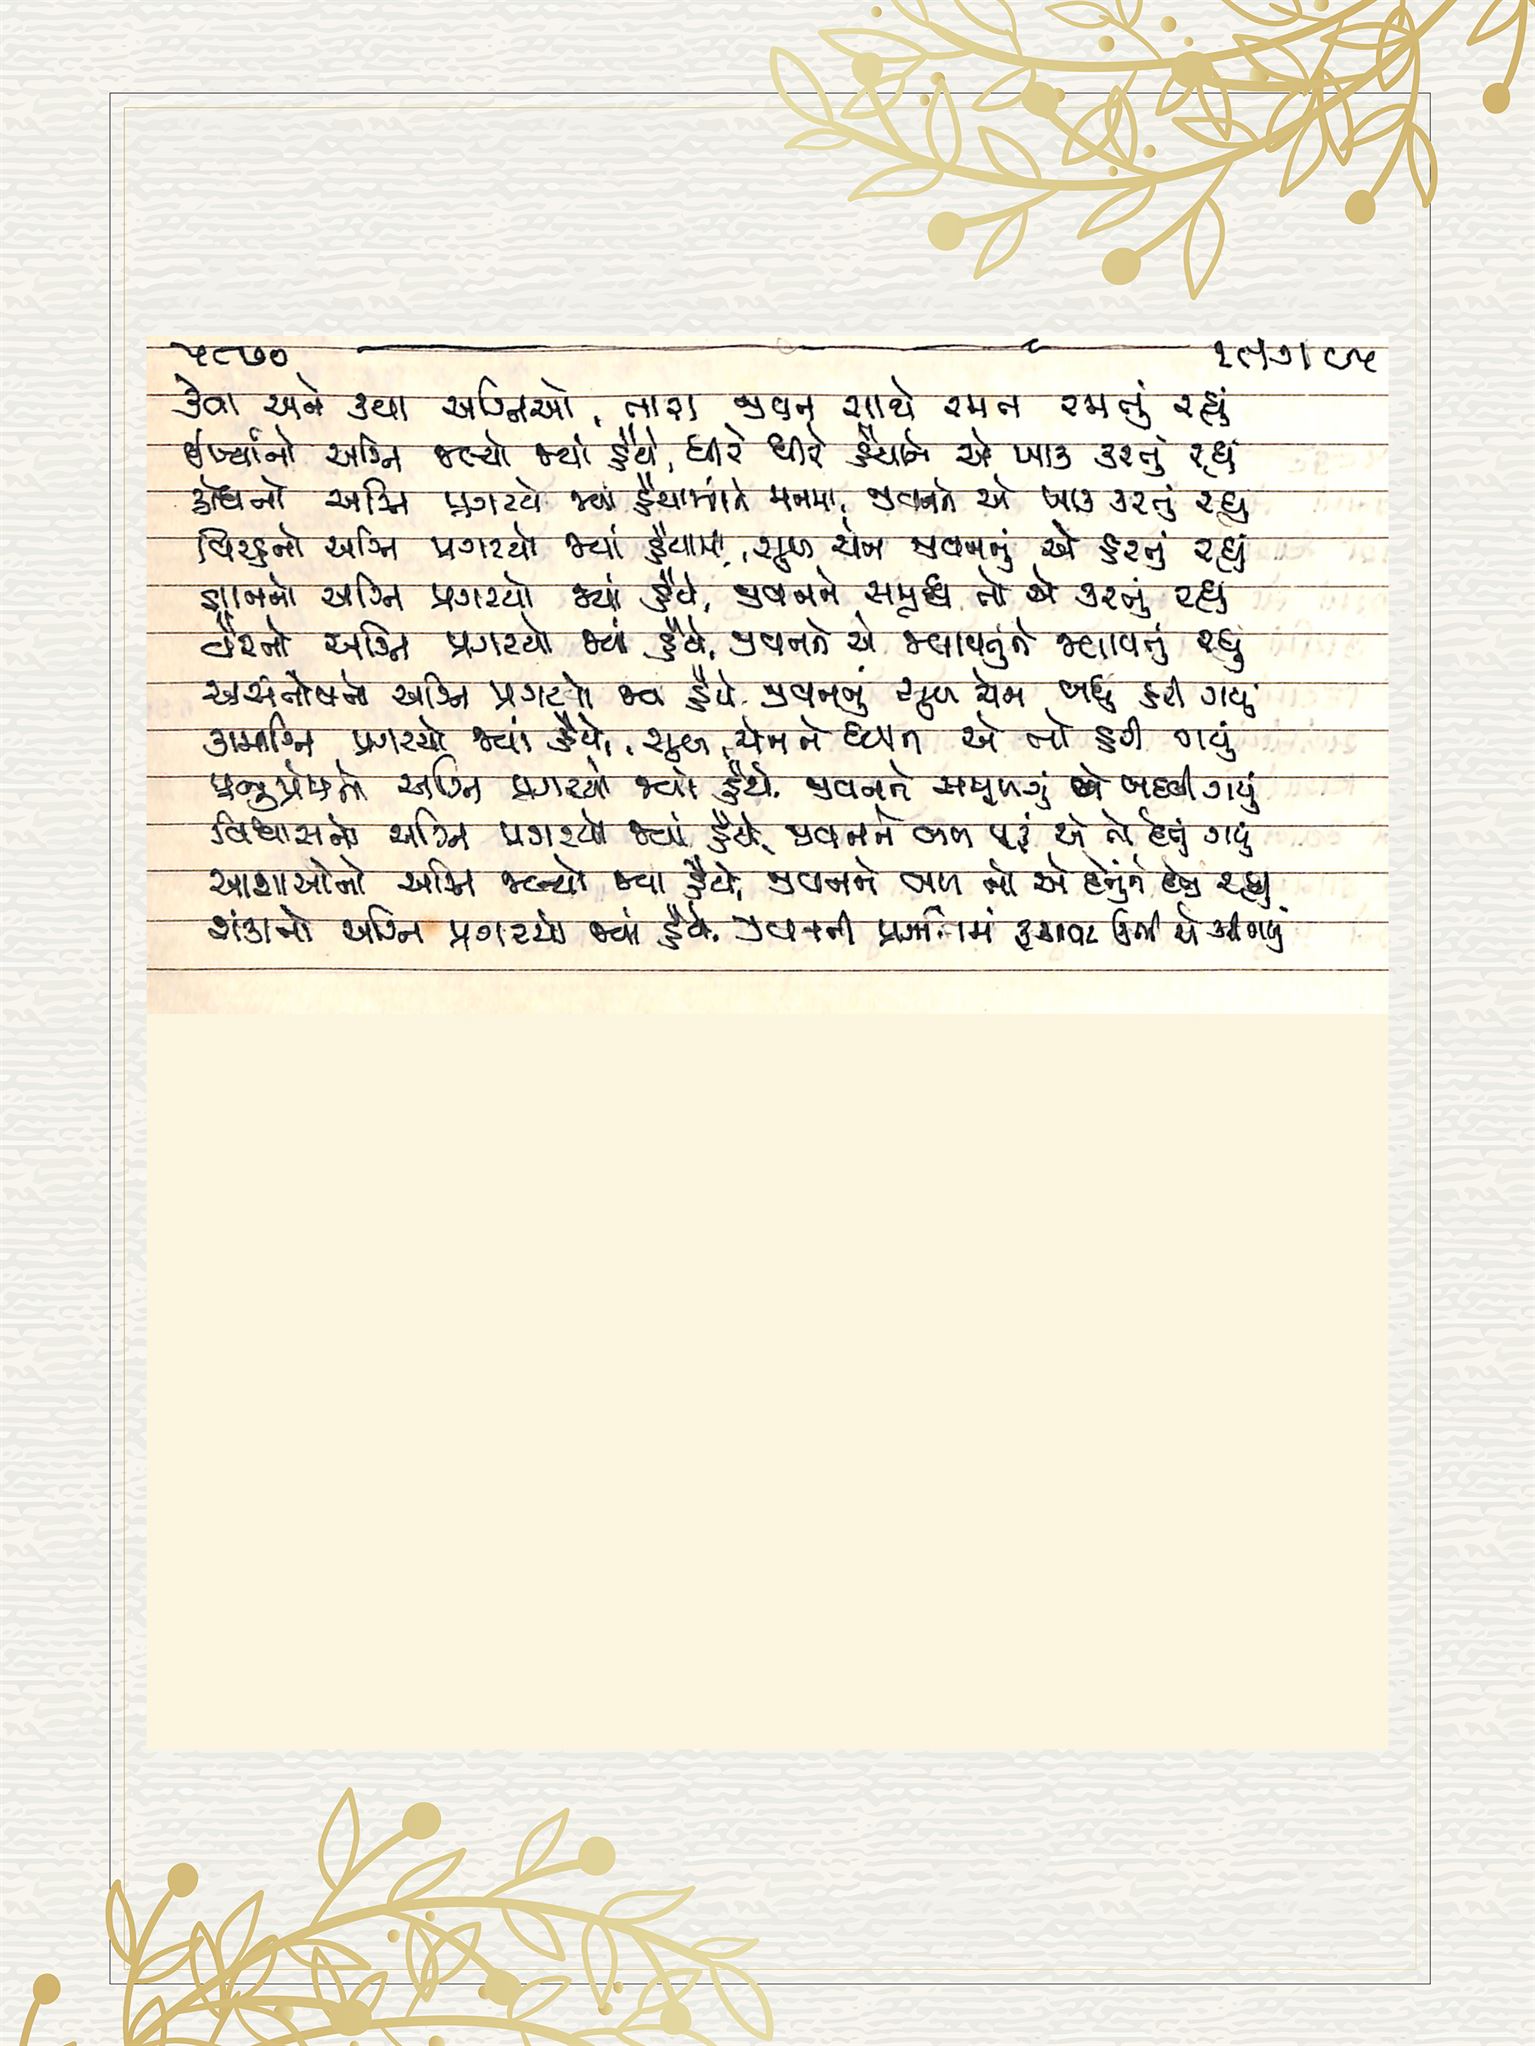 ૫૮૭૦
કેવા અને કયા અગ્નિઓ, તારા જીવન સાથે રમત રમતું રહ્યું
ઈર્ષ્યાનો અગ્નિ જલ્યો જ્યાં હૈયે, ધીરે ધીરે હૈયાને એ ખાક કરતું રહ્યું
ક્રોધનો અગ્નિ પ્રગટયો જ્યાં હૈયામાંને મનમાં, જીવનને એ ખાક કરતું રહ્યું
વિરહનો અગ્નિ પ્રગટયો જ્યાં હૈયામાં, સુખ ચેન જીવનનું એ હરતું રહ્યું
જ્ઞાનનો અગ્નિ પ્રગટયો જ્યાં હૈયે, જીવનને સમૃદ્ધ તો એ કરતું રહ્યું
વૈરનો અગ્નિ પ્રગટયો જ્યાં હૈયે, જીવનને એ જલાવતુંને જલાવતું રહ્યું
અસંતોષનો અગ્નિ પ્રગટયો જ્યાં હૈયે જીવનનું સુખ ચેન બધું હરી ગયું
કામાગ્નિ પ્રગટયો જ્યાં હૈયે, સુખ, ચેનને ધ્યાન એ તો હરી ગયું
પ્રભુપ્રેમનો અગ્નિ પ્રગટયો જ્યાં હૈયે, જીવનને એ બદલી ગયું
વિશ્વાસનો અગ્નિ પ્રગટયો જ્યાં હૈયે, જીવનને બળ પૂરું એ તો દેતું ગયું
આશાઓનો અગ્નિ જલ્યો જ્યાં હૈયે, જીવનને બળ તો એ દેતુંને દેતું રહ્યું
શંકાનો અગ્નિ પ્રગટયો જ્યાં હૈયે, જીવનની પ્રગતિમાં રૂકાવટ ઊભી એ કરી ગયું